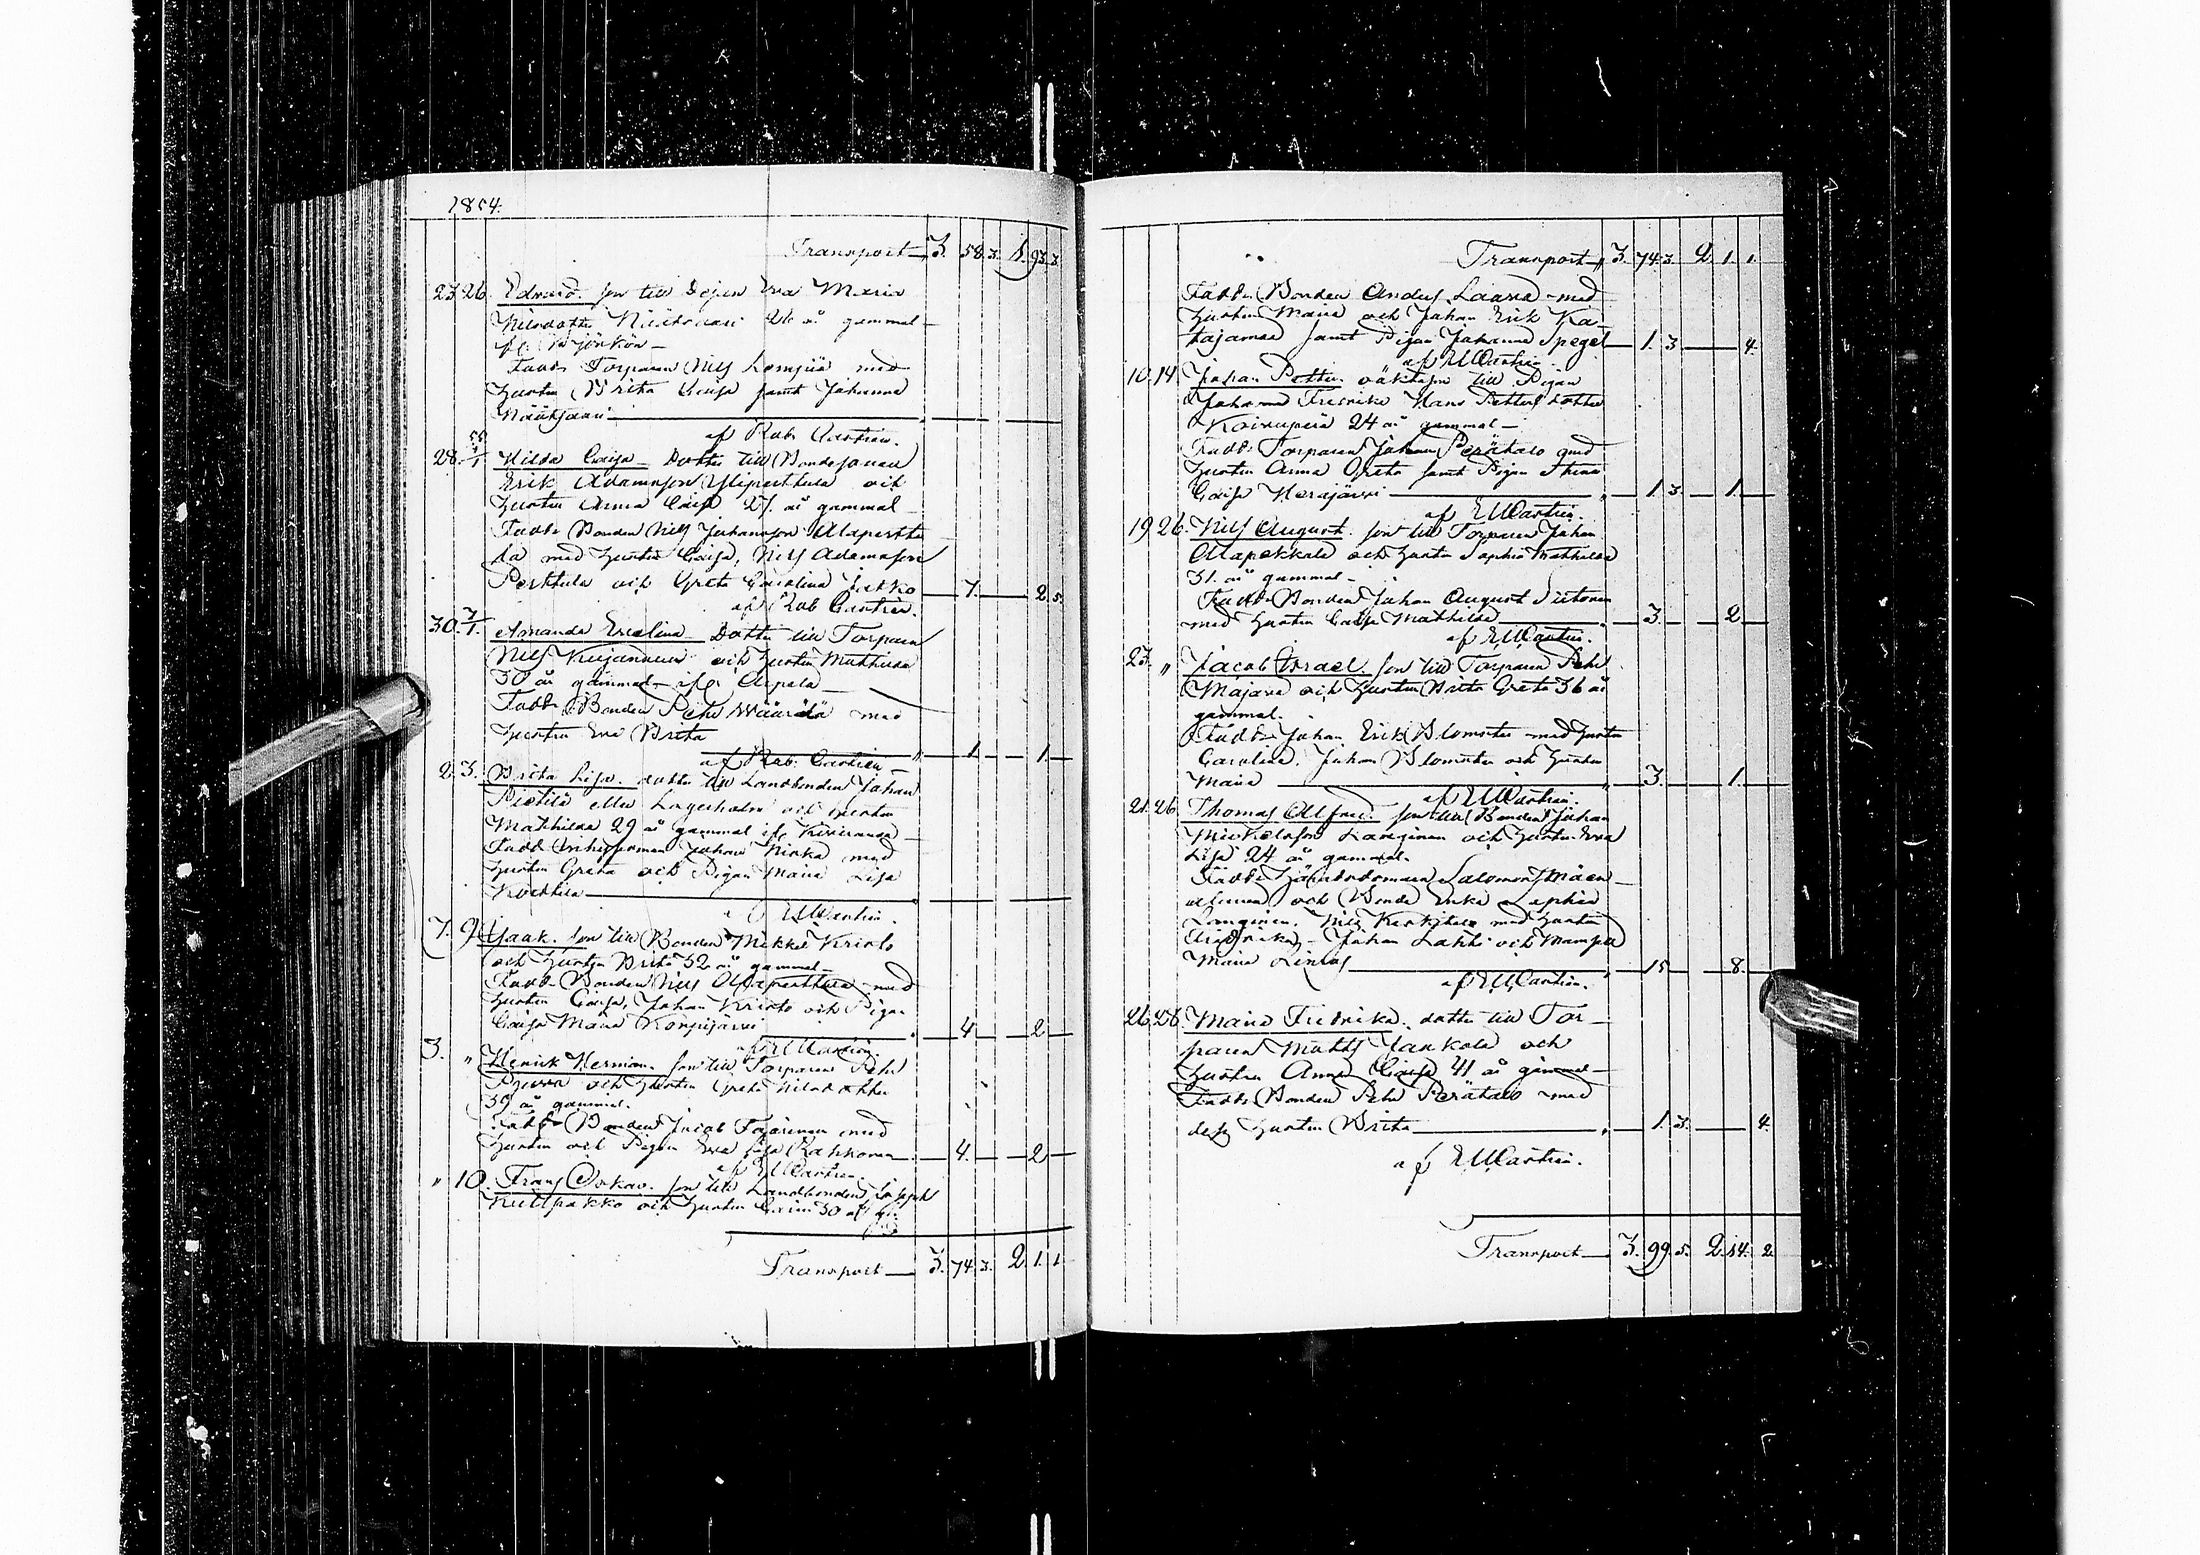 1854.
Transport 3. 58. 3. 1. 93. 3.
23 26. Edvard. son till Pigan Eva Maria
Nilsdotter 26 år gammal
Fadd. Torparen Nils Lompiä med
Hustru Brita Caisa samt Johanna
Näätsaari
af Rab. Castrén.
28. Hilda Caisa Dotter till Bondesonen
Erik Adamsson Ylipertthula och
Hustru Anna Caisa 27. år gammal
Fadd. Bonden Nils Johansson Alapertthu
la med Hustru Caisa, Nils Adamsson
Perthula och Greta Carolina 7. 2. 5.
af Rab Castrén.
30. 7/1. Amanda Evelina Dotter till Torparen
Nils Keijanauer och Hustru Mathilda
30 år gammal
Fadd. Bonden Pehr Määrälä med
Hustru Eva Brita
1. 1.
af Rab. Castrén
2. 3. Brita Lisa. dotter till Landbonden Johan
Pietilä eller Lagerholm och Hustru
Mathilda 29 år gammal
Fadd. Johan Niska med
Hustru Greta och Pigan Maria Lisa
Kväkkila
af EWCastrén.
7. 9. Isaak. son till Bonden Mikkel Kristo
och Hustru Brita 32 år gammal
Fadd. Bonden Nils Alapertthula med
Hustru Caisa, Johan Kristo och Pigan
Caisa Maria Konpijärvi 4. 2.
af EWCastrén.
3. " Henrik Herman. son till Torparen Pehr
och Hustru Greta Nilsdotter
39 år gammal.
Fadd. Bonden Jacob Tapaninen med
Hustru och Pigan Eva Lisa Rahkonen 4. 2
af EWCastrén.
" 10. Frans Oskar. son till Landbonden Joseph
Kuttpakko och Hustru 30 år
Transport 3. 74. 3. 2. 1. 1.
Transport 3. 74. 3. 2. 1. 1.
Fadd. Bonden Anders Laara med
Hustru Maria och Johan Erik Ka-
tajamaa samt Pigan Johanna Spegel 1. 3 4.
af EWCastrén.
10. 14. Johan Petter. oäkta son till Pigan
Johanna Fredrika Hans Petters dotter
Koivupää 24 år gammal
Fadd. Torparen Johan Perätalo med
Hustru Anna Greta samt Pigan Stina
Caisa Kerajärvi 1. 3. 1.
af EWCastrén.
19. 26. Nils August. son till Torparen Johan
Alapekkala och Hustru Sophia Mathilda
31. år gammal
Fadd. Bonden Johan August
med Hustru Caisa Mathilda 3. 2
af EWCastrén.
23. " Jacob Israel. son till Torparen Pehr
Majava och Hustru Brita Greta 36 år
gammal.
Fadd. Johan Erik Blomster med Hustru
Carolina. Johan Blomster och Hustru
Maria 3. 1.
af EWCastrén.
21. 26 Thomas Alfred. son till Bonden Johan
Mickelsson Laaginen och Hustru Eva
Lisa 24 år gammal.
Fadd. Häradsdomaren Salomon
och Bonde Enka Sophia
Laaginen. Nils med Hustru
Fredrika. Johan Lahti och Mamsell
Maria 15 8.
af EWCastrén.
26. 28. Maria Fredrika. dotter till Tor-
paren Matts Jankola och
Hustru Anna Caisa 41 år gammal
Fadd. Bonden Pehr Perätalo med
dess Hustru Brita 1. 3. 4.
af EWCastrén.
Transport 3. 99. 5. 2. 14. 2.